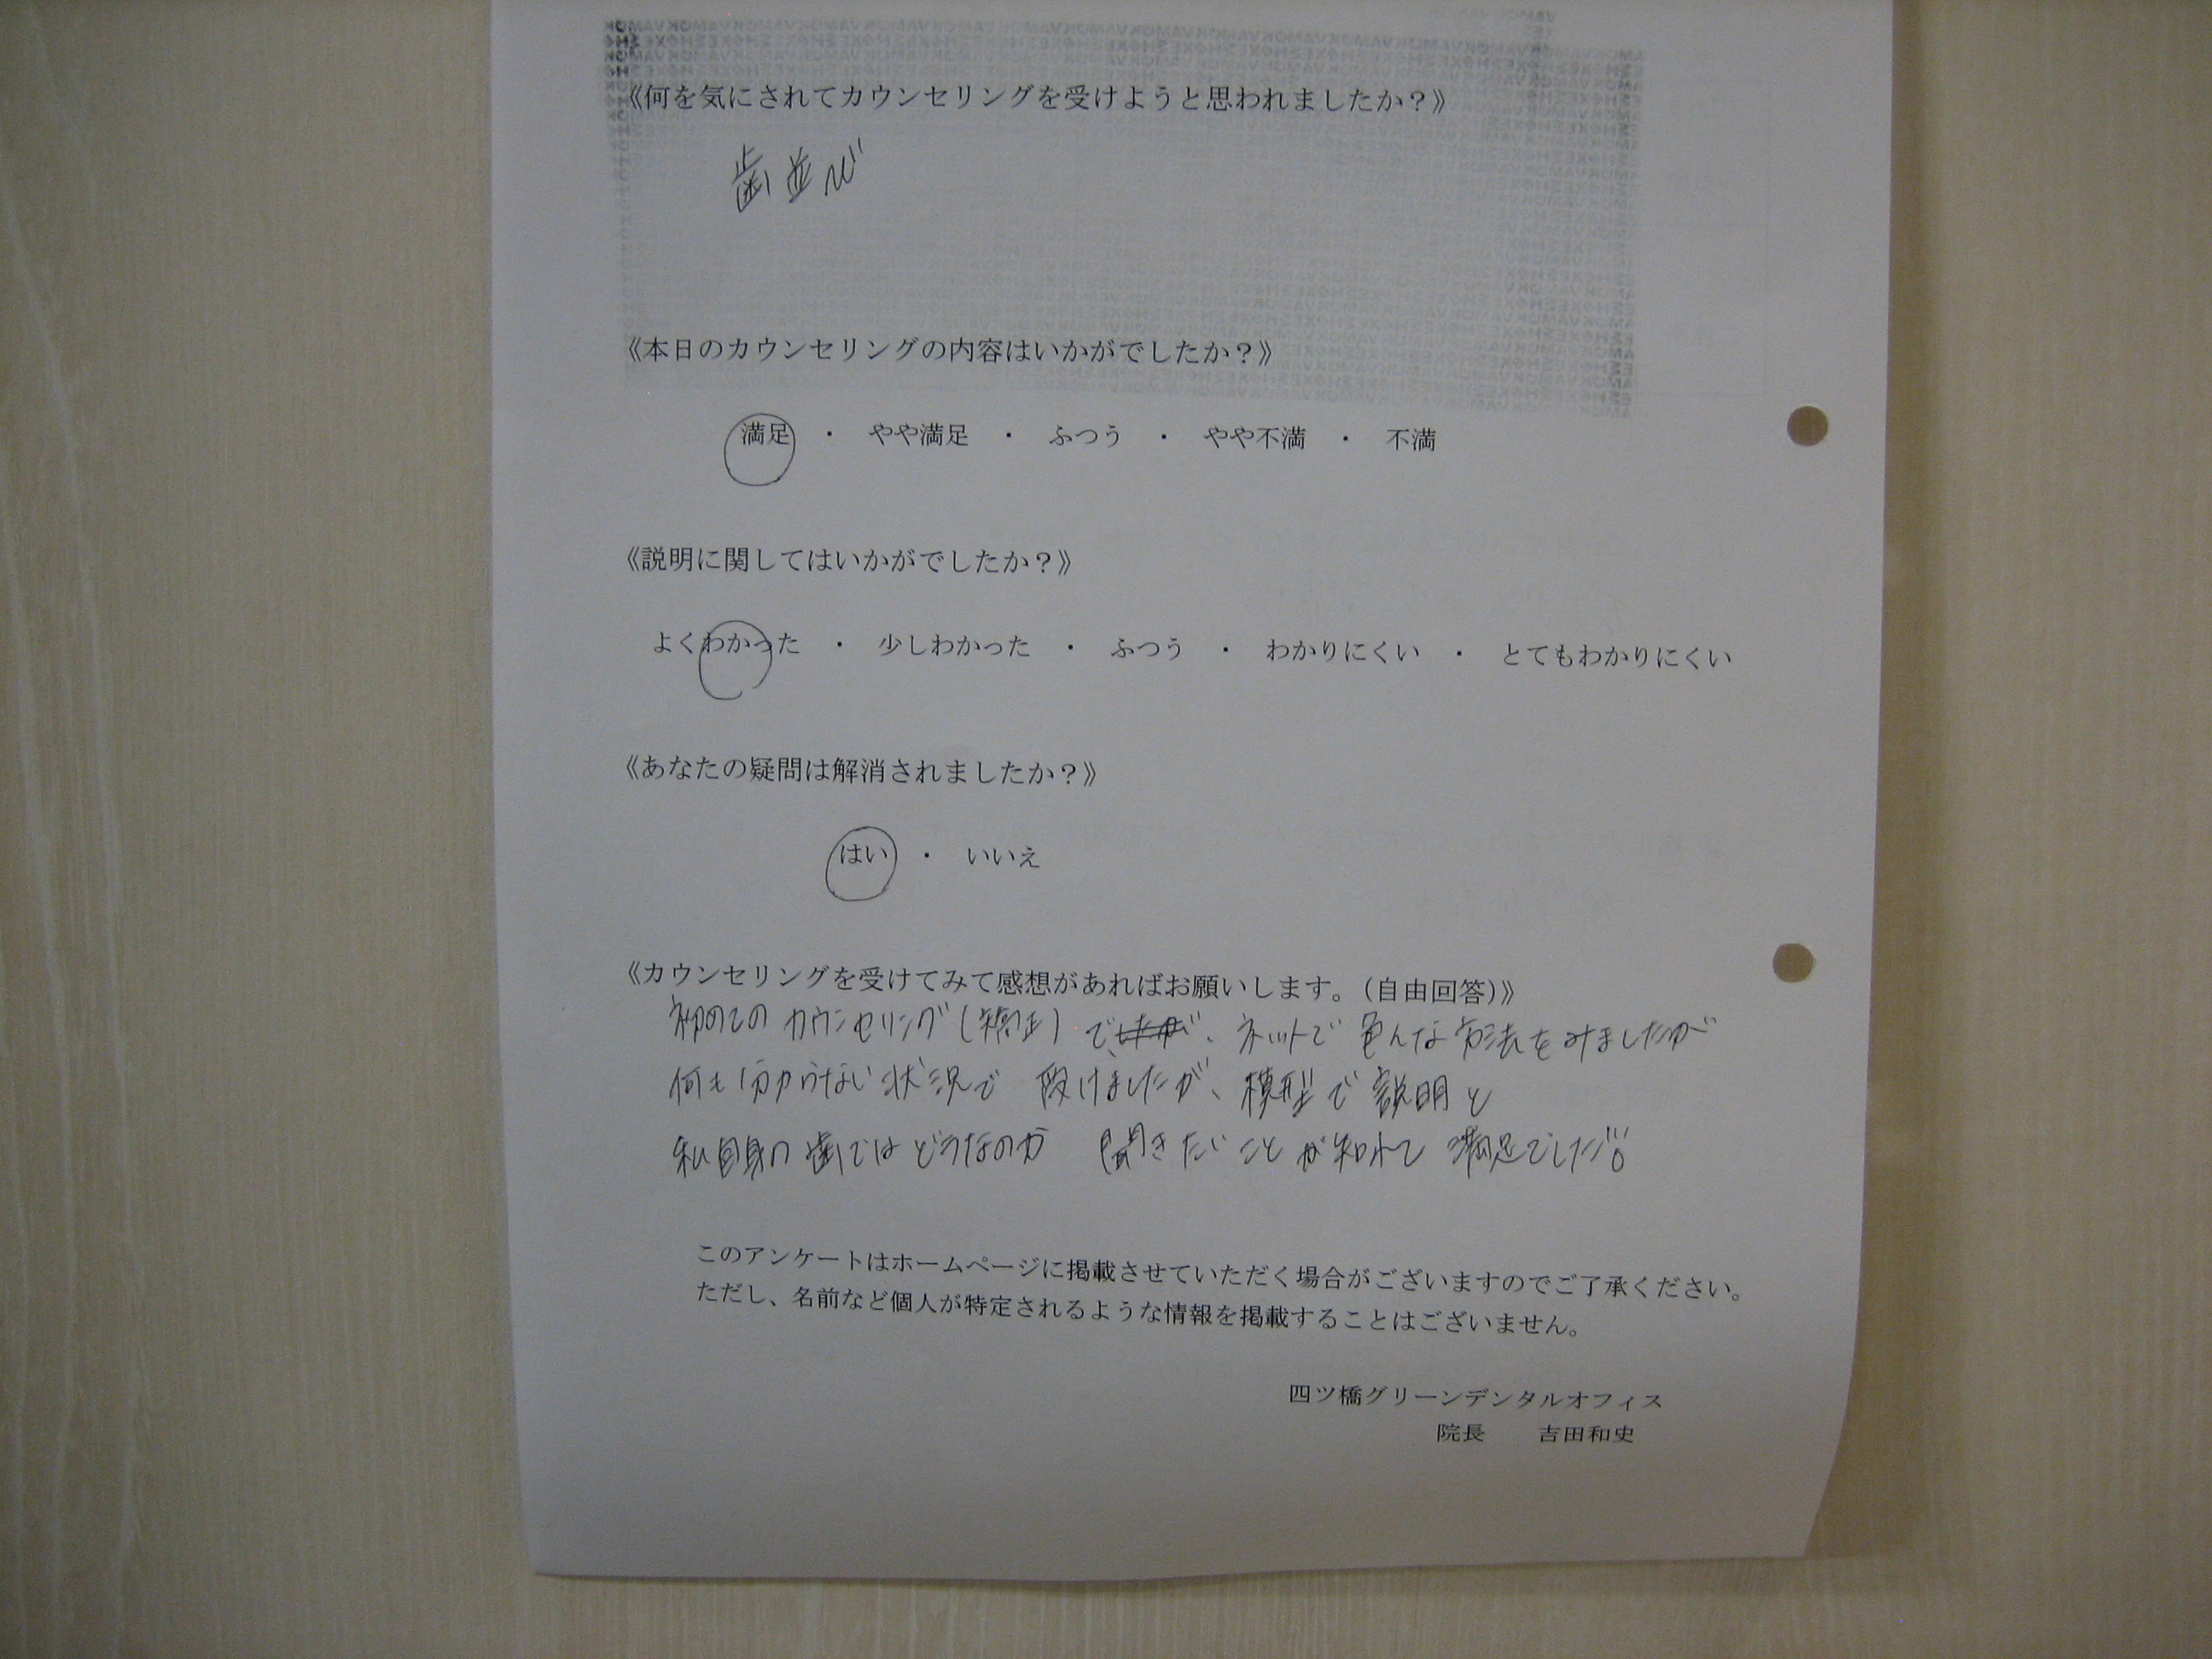 《何を気にされてカウンセリングを受けようと思われましたか？》
歯並び
《本日のカウンセリングの内容はいかがでしたか？》
満足 ・ やや満足 ・ ふつう ・ やや不満 ・ 不満
《説明に関してはいかがでしたか？》
よくわかった ・ 少しわかった ・ ふつう ・ わかりにくい ・ とてもわかりにくい
《あなたの疑問は解消されましたか？》
はい ・ いいえ
《カウンセリングを受けてみて感想があればお願いします。（自由回答）》
初めてのカウンセリング（矯正）で、ネットで色んな方法をみましたが
何も分からない状況で受けましたが、模型で説明と
私自身の歯ではどうなのか聞きたいことが知れて満足でした!!
このアンケートはホームページに掲載させていただく場合がございますのでご了承ください。
ただし、名前など個人が特定されるような情報を掲載することはございません。
四ツ橋グリーンデンタルオフィス
院長 吉田和史